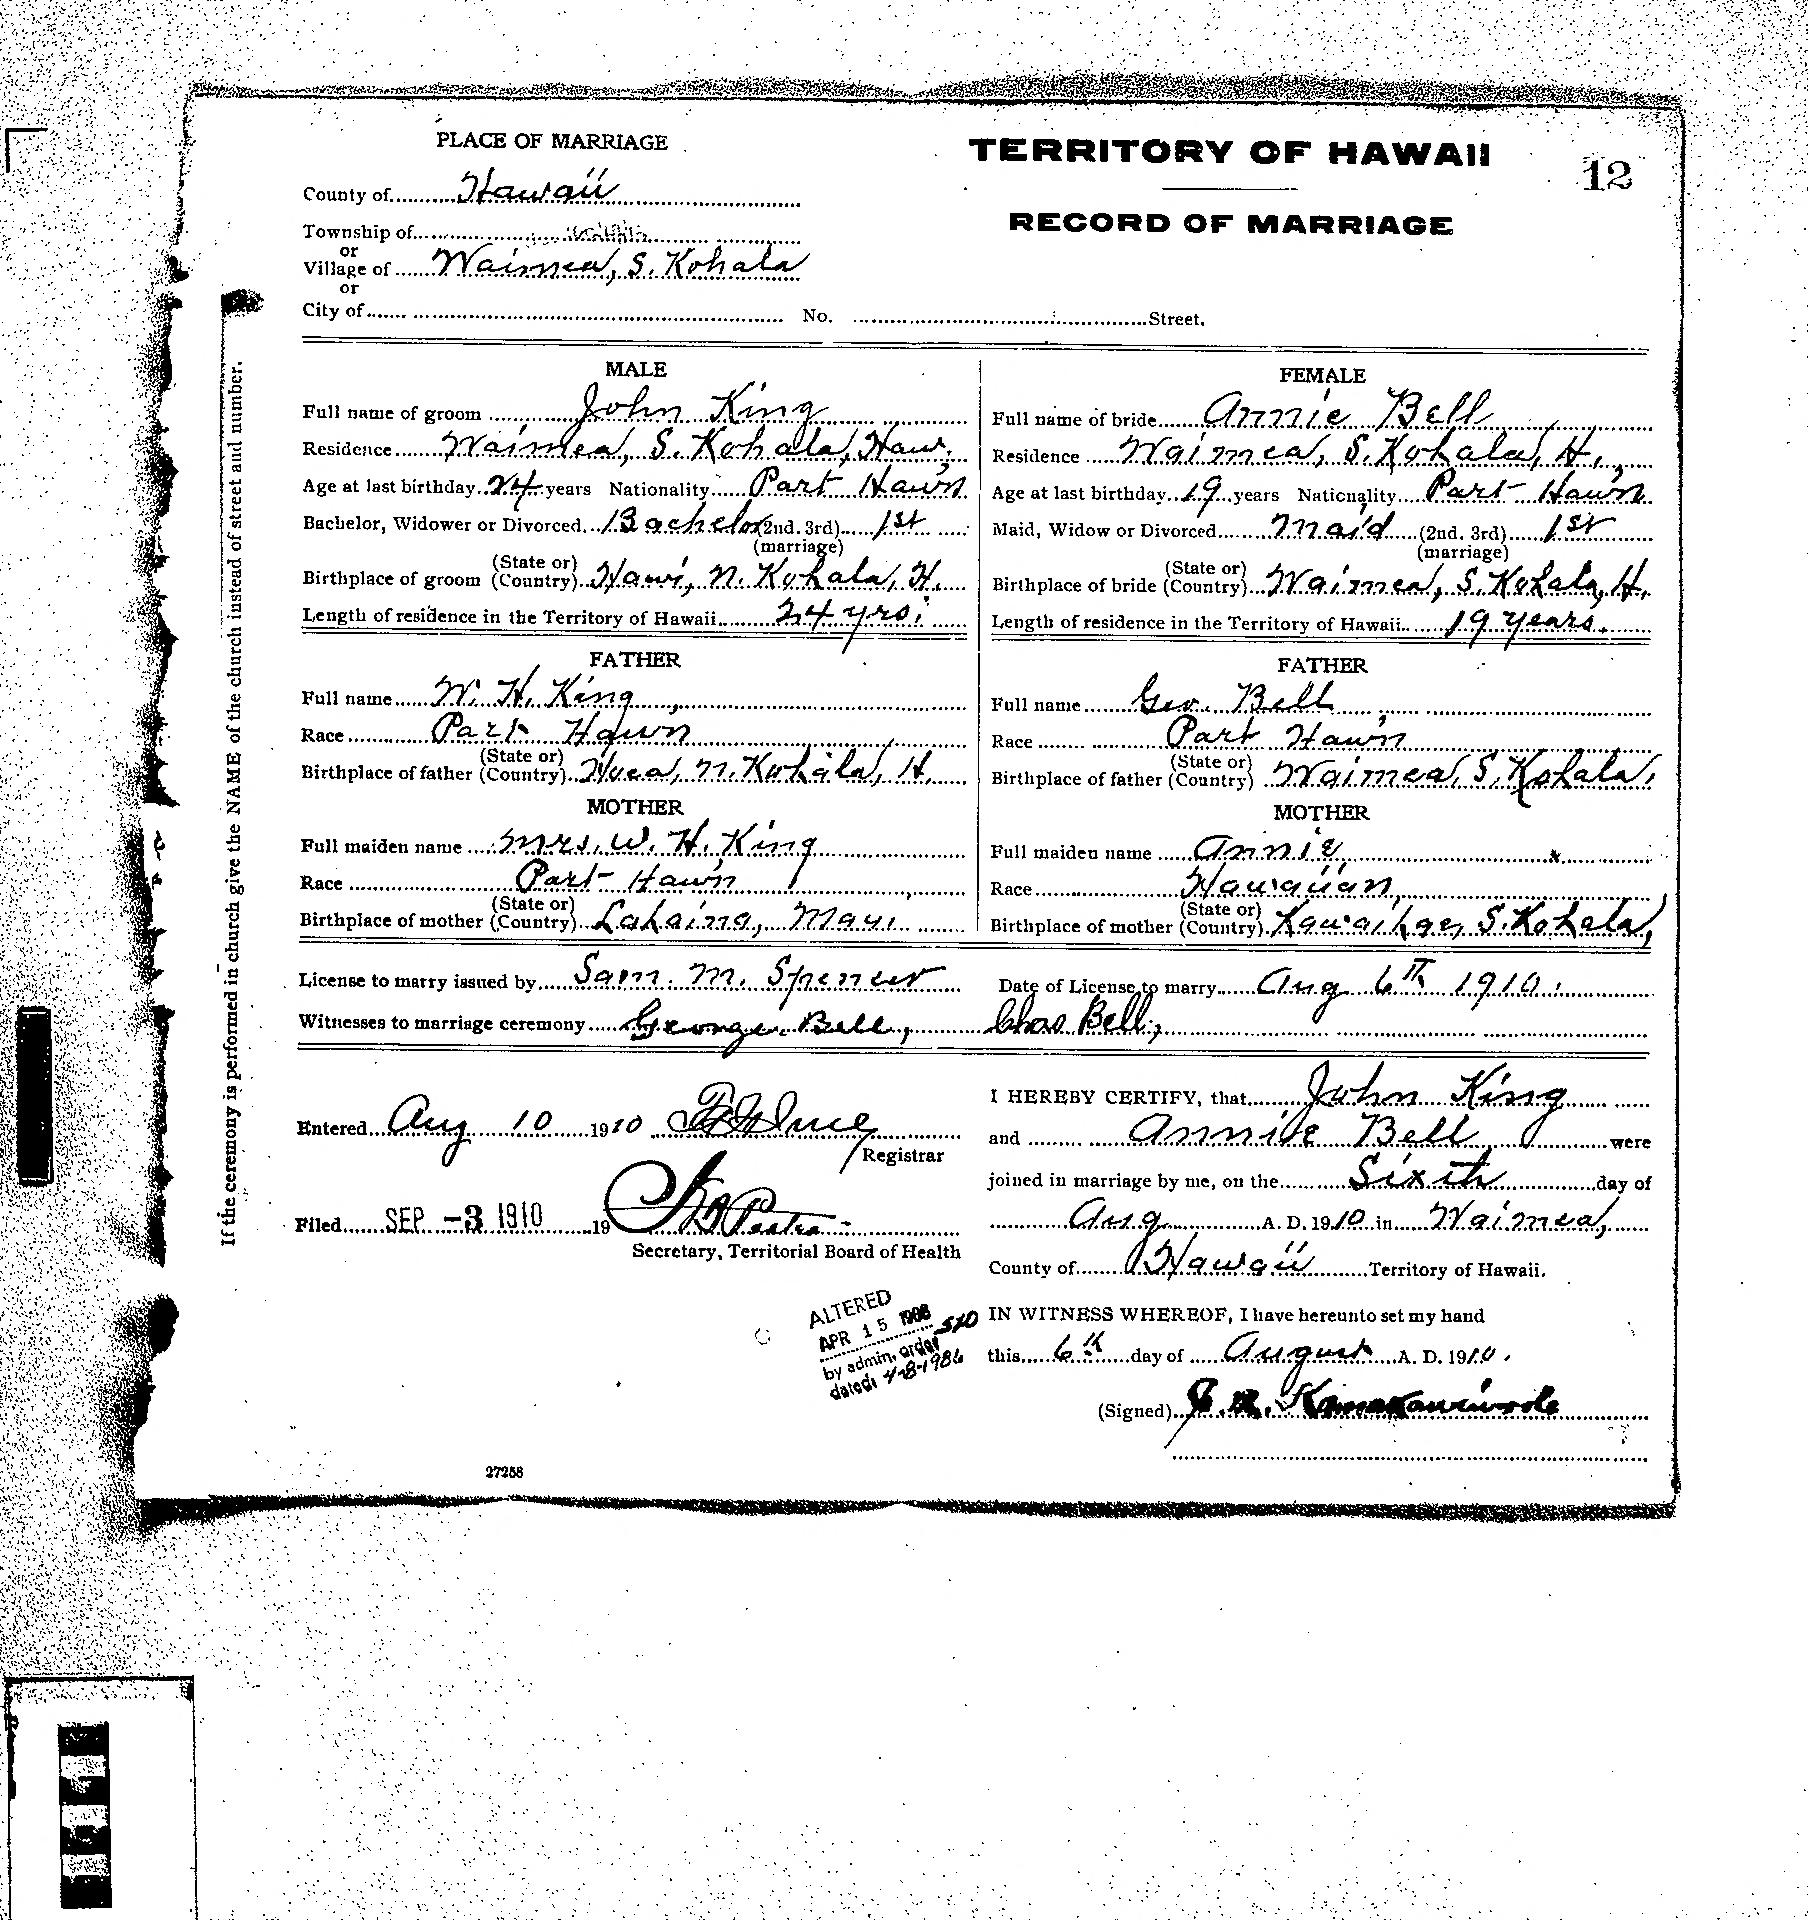 PLACE OF MARRIAGE
TERRITORY OF HAWAII
12
County of Hawaii
RECORD OF MARRIAGE
Township of
or
Village of Waimea, S. Kohala
or
City of No. Street.
If the ceremony is performed in church give the NAME of the church instead of street and number.
MALE
Full name of groom John King
Residence Waimea, S. Kohala, Haw.
Age at last birthday 24 years Nationality Part Hawn
Bachelor, Widower or Divorced Bachelor (2nd. 3rd) 1st
(marriage)
Birthplace of groom (State or) (Country) Hawi, N. Kohala, H.
Length of residence in the Territory of Hawaii 24 yrs.
FATHER
Full name W. H. King
Race Part Hawn
Birthplace of father (State or) (Country) N. Kohala, H.
MOTHER
Full maiden name Mrs. W. H. King
Race Part Hawn
Birthplace of mother (State or) (Country) Lahaina, Maui
FEMALE
Full name of bride Annie Bell
Residence Waimea, S. Kohala, H.
Age at last birthday 19 years Nationality Part Hawn
Maid, Widow or Divorced Maid (2nd. 3rd) 1st
(marriage)
Birthplace of bride (State or) (Country) Waimea, S. Kohala, H.
Length of residence in the Territory of Hawaii 19 years.
FATHER
Full name Geo. Bell
Race Part Hawn
Birthplace of father (State or) (Country) Waimea, S. Kohala,
MOTHER
Full maiden name Annie
Race Hawaiian
Birthplace of mother (State or) (Country) Kawaihae, S. Kohala,
License to marry issued by Sam. M. Spencer
Date of License to marry Aug 6th 1910.
Witnesses to marriage ceremony George Bell, Chas Bell,
Entered Aug 10 1910
Registrar
Filed SEP -3 1910 19
Secretary, Territorial Board of Health
ALTERED
APR 15 1986
by admin. order
dated: 4-8-1986
27258
I HEREBY CERTIFY, that John King
and Annie Bell were
joined in marriage by me, on the Sixth day of
Aug A. D. 1910 in Waimea,
County of Hawaii Territory of Hawaii.
IN WITNESS WHEREOF, I have hereunto set my hand
this 6th day of August A. D. 1910.
(Signed)